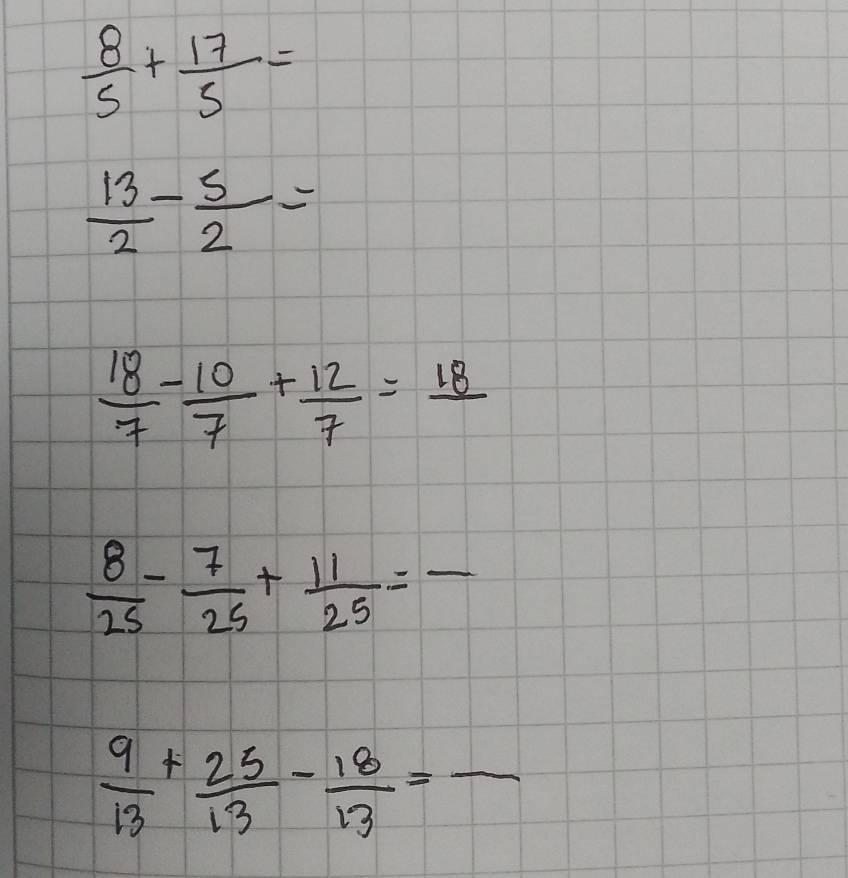 8/5 + 17/5 =
13/2 - 5/2 =
18/7 - 10/7 + 12/7 = 18/
8/25 - 7/25 + 11/25 = —
9/13 + 25/13 - 18/13 = —